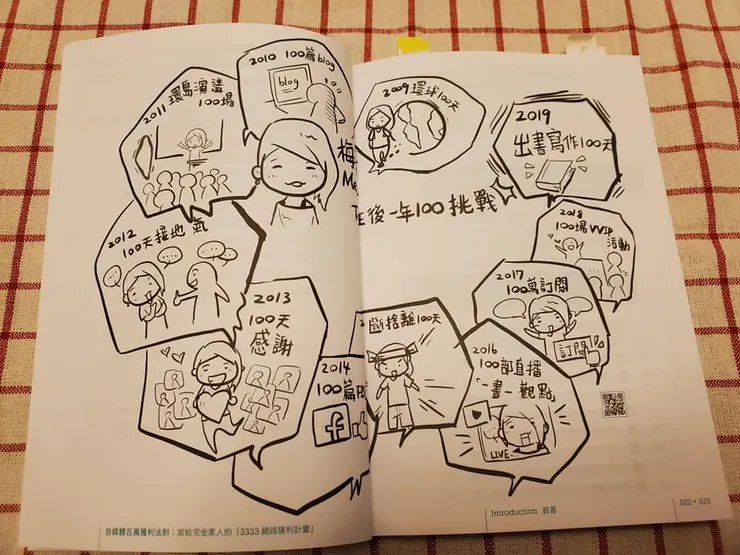 2009環球100天
2010 100篇blog
blog
2011環島演講
100場
2012
100天接地氣
2013
100天
感謝
2014
100篇
f
斷捨離100天
2016
100部直播
「一書一觀點
LIVE
2017
100萬訂閱
訂閱
2018
100場VVIP
活動
2019
出書寫作100天
梅
後一年100挑戰
自媒體百萬獲利法則：寫給完全素人的「3333網路獲利計畫」
Introduction 前言
022 • 023